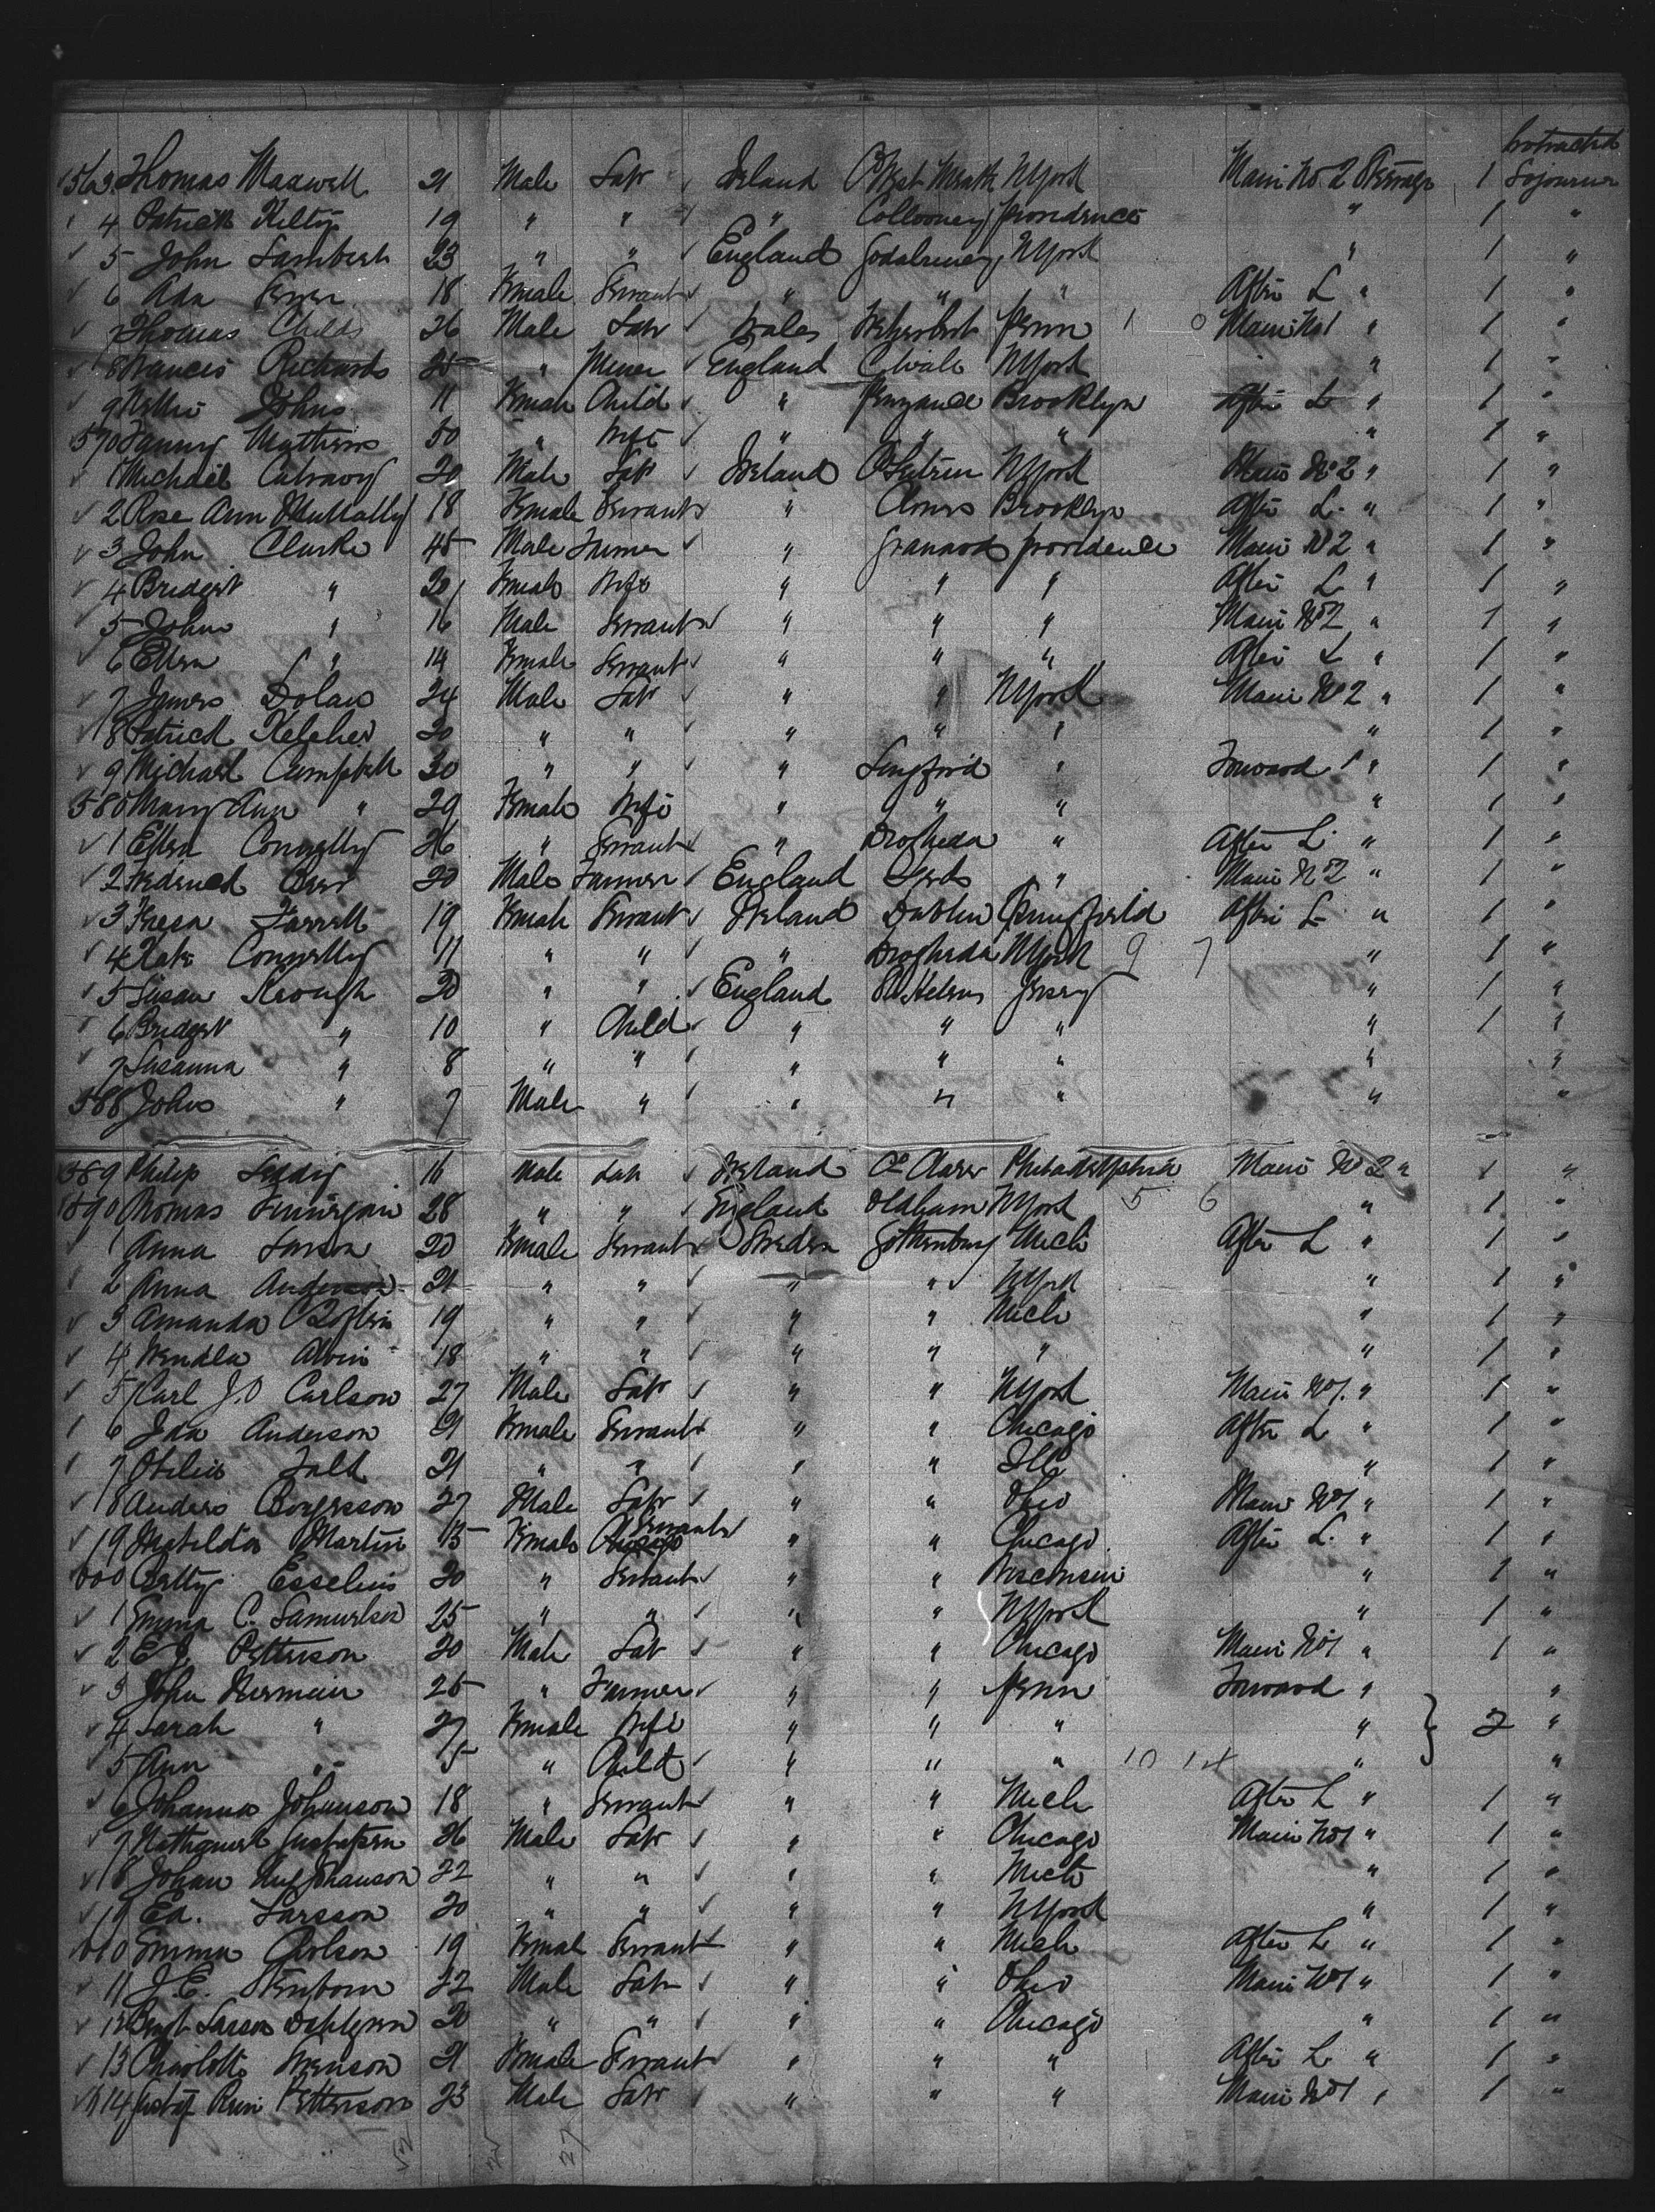 Protracted
563 Thomas Maxwell 21 Male Labr Ireland Co West Meath NYork Main No 2 Steerage 1 Sojourner
4 Patrick Kelty 19 " " " Collooney Providence " 1 "
5 John Lambert 23 " " England Godalming NYork " 1 "
6 Ada 18 Female Servant " " " After L " 1 "
7 Thomas Childs 26 Male Labr Wales Penn 1 0 Main No 1 " 1 "
8 Francis Richards 25 " Miner England NYork " 1 "
9 Nellie Johns 11 Female Child " Penzance Brooklyn After L " 1 "
570 Fanny Mathews 50 " Wife " " " " 1 "
1 Michael 20 Male Labr Ireland Co Leitrim NYork Main No 2 " 1 "
2 Rose Ann McNally 18 Female Servant " Clones Brooklyn After L. " 1 "
3 John Clarke 45 Male Farmer " Granard Providence Main No 2 " 1 "
4 Bridget " Female Wife " " " After L " 1 "
5 John " 16 Male Servant " " " Main No 2 " 1 "
6 Ellen " 14 Female Servant " " " After L " 1 "
7 James Dolan 24 Male Labr " " NYork Main No 2 " 1 "
8 Patrick Keleher 20 " " " " " " 1 "
9 Michael Campbell 30 " " " Longford " Forward " 1 "
580 Mary Ann " 29 Female Wife " " " " 1 "
1 Ellen Connelly 26 " Servant " Drogheda " After L. " 1 "
2 Frederick 20 Male Farmer England Leeds " Main No 2 " 1 "
3 Farrell 19 Female Servant Ireland Dublin Springfield After L " 1 "
4 Kate Connelly 11 " " " Drogheda NYork 9 7 " 1 "
5 Susan Keough 30 " " England St Helens Jersey " 1 "
6 Bridget " 10 " Child " " " " 1 "
7 Susanna " 8 " " " " " " "
588 John " 7 Male " " " " " "
589 Philip Leddy 16 Male Labr Ireland Co Clare Philadelphia Main No 2 " 1 "
1590 Thomas Finnigan 28 " " England Oldham NYork 5 6 " 1 "
1 Anna Larson 20 Female Servant Sweden Gothenburg Mich After L " 1 "
2 Anna Anderson 21 " " " " NYork " 1 "
3 Amanda 19 " " " " Mich " 1 "
4 Wendla Alvin 18 " " " " " " 1 "
5 Carl J.O Carlson 27 Male Labr " " NYork Main No 1. " 1 "
6 Ida Anderson 21 Female Servant " " Chicago After L " 1 "
7 Otilia Falk 21 " " " " Ill " 1 "
8 Anders Borgesson 27 Male Labr " " Ohio Main No 1 " 1 "
9 Matilda Martin 15 Female Servant " " Chicago After L. " 1 "
600 Betty Esselius 20 " Servant " " Wisconsin " 1 "
1 Emma C. Samuelson 25 " " " " NYork " 1 "
2 E J Petterson 20 Male Labr " " Chicago Main No 1 " 1 "
3 John Nerman 25 " Farmer " " Penn Forward " "
4 Sarah " 27 Female Wife " " " " 2 "
5 Ann " 5 " Child " " " 10 14 " "
6 Johanna Johanson 18 " Servant " " Mich After L " 1 "
7 Nathanael Gustafson 26 Male Labr " " Chicago Main No 1 " 1 "
8 Johan Johanson 22 " " " " Mich " 1 "
9 Ed. Larsson 20 " " " " NYork " 1 "
610 Emma Carlson 19 Female Servant " " Mich After L " 1 "
11 J.E. Stenbom 22 Male Labr " " Ohio Main No 1 " 1 "
12 Bengt Larson Dahlgren 20 " " " " Chicago " 1 "
13 Charlotte Swenson 21 Female Servant " " " After L. " 1 "
14 Gustaf Petterson 23 Male Labr " " " Main No 1 " 1 "